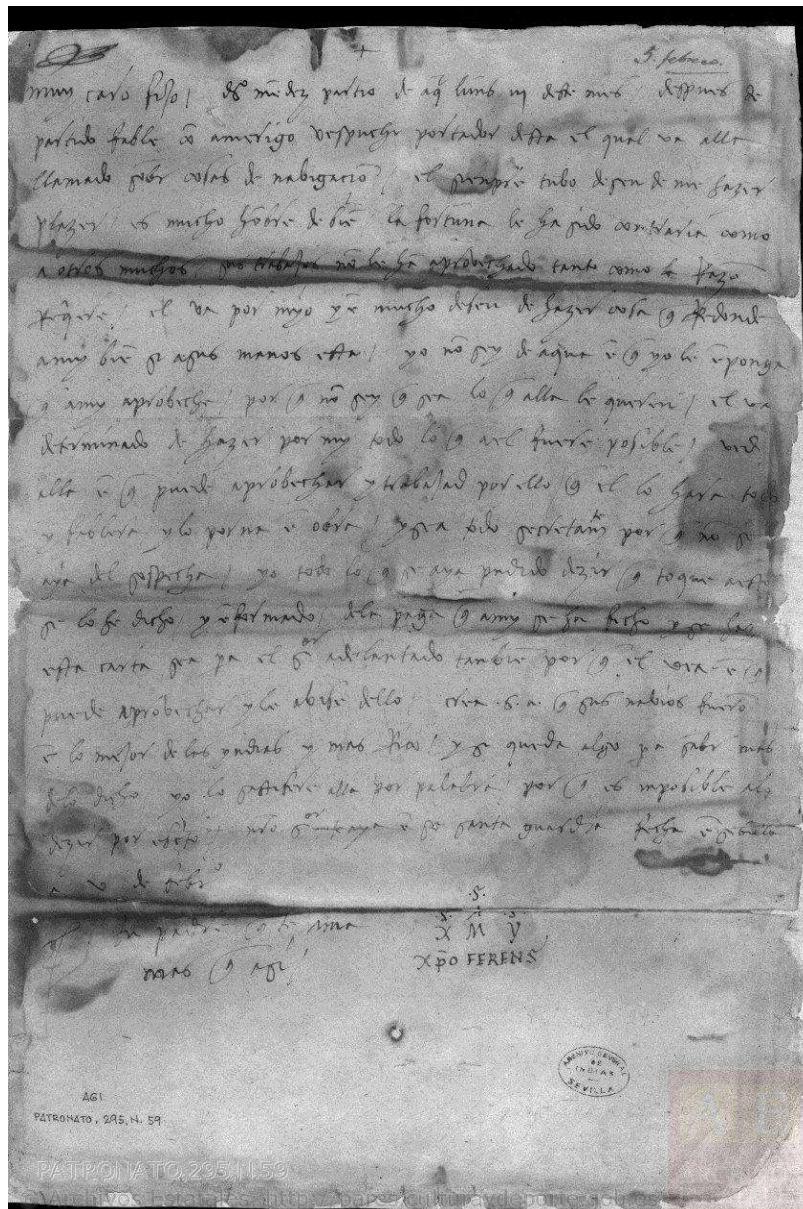 5. febrero.
+
muy caro fijo / dº mēdez partio de aq̄ lunes iij deste mes / despues de
partido fable cō amerigo vespuchi portador desta el qual va alla
llamado sobr cosas de nabigaciō / el siempre tubo deseu de me hazer
plazer / es mucho hōbre de biē / la fortuna le ha sido contraria como
a otros muchos / sus trabajos nō le hā aprobechado tanto como la Razō
Reqere / el va por myo y ē mucho deseu de hazer cosa q̄ Redonde
a my biē si a sus manos esta / yo nō sey de aqua ē q̄ yo le ēponga
q̄ a my aprobeche / por q̄ nō sey q̄ sea lo q̄ alla le queren / el va
determinado de hazer por my todo lo q̄ a el fuere posible / ved
alla ē q̄ puede aprobechar y trabajad por ello / q̄ el lo hara todo
y fablera y lo porna ē obra / y sea todo secretamte por q̄ nō se
aya del sospecha / yo todo lo q̄ se aya pudido dezir q̄ toque a esto
se lo he dicho / y ēformado / dela paga q̄ a my se ha fecho y se haz
esta carta sea pa el sor adelantado tambiē por q̄ el vea ē q̄
puede aprobechar y le abise dello / crea .s.a. q̄ sus nabios fuerō
ē lo mejor de las yndias y mas Rico / y si queda algo pa saber mas
delo dicho yo lo satisfere alla por palabra / por q̄ es imposible alo
dezir por escrito nro sor te aya ē su santa guardia fecha ē sebilla
a v de febrº
tu padre q̄ te ama
mas q̄ a si /
.S.
.S. A .S.
X M Y
Xp̄o FERENS
ARCHIVO GENERAL
DE
INDIAS
SEVILLA
AGI
PATRONATO, 295, N. 59
PATRONATO,295,N.59
Archivos Estatales, http://pares.culturaydeporte.gob.es